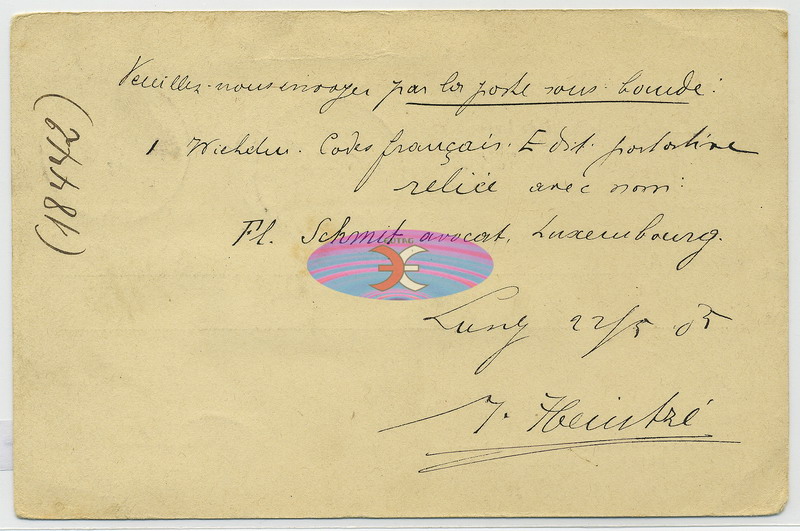 Veuillez nous envoyer par la poste sous bande:
1 Codes français. Edit. portative
reliée avec nom:
Fl. Schmit avocat, Luxembourg.
22/5 05
J. Heintzé
(18442)